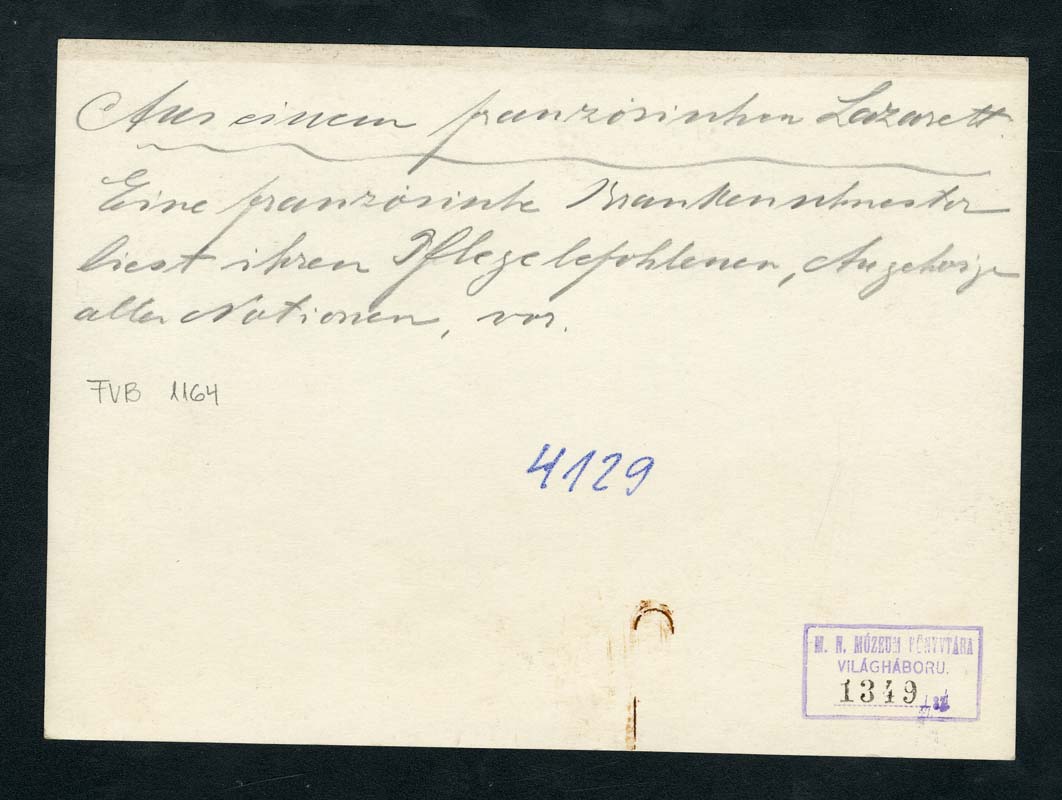 Aus einem französischen Lazarett.
Eine französische Krankenschwester
liest ihren Pflegebefohlenen, Angehörige
aller Nationen, vor.
FVB 1164
4129
M. N. MÚZEUM KÖNYVTÁRA
VILÁGHÁBORU.
1349